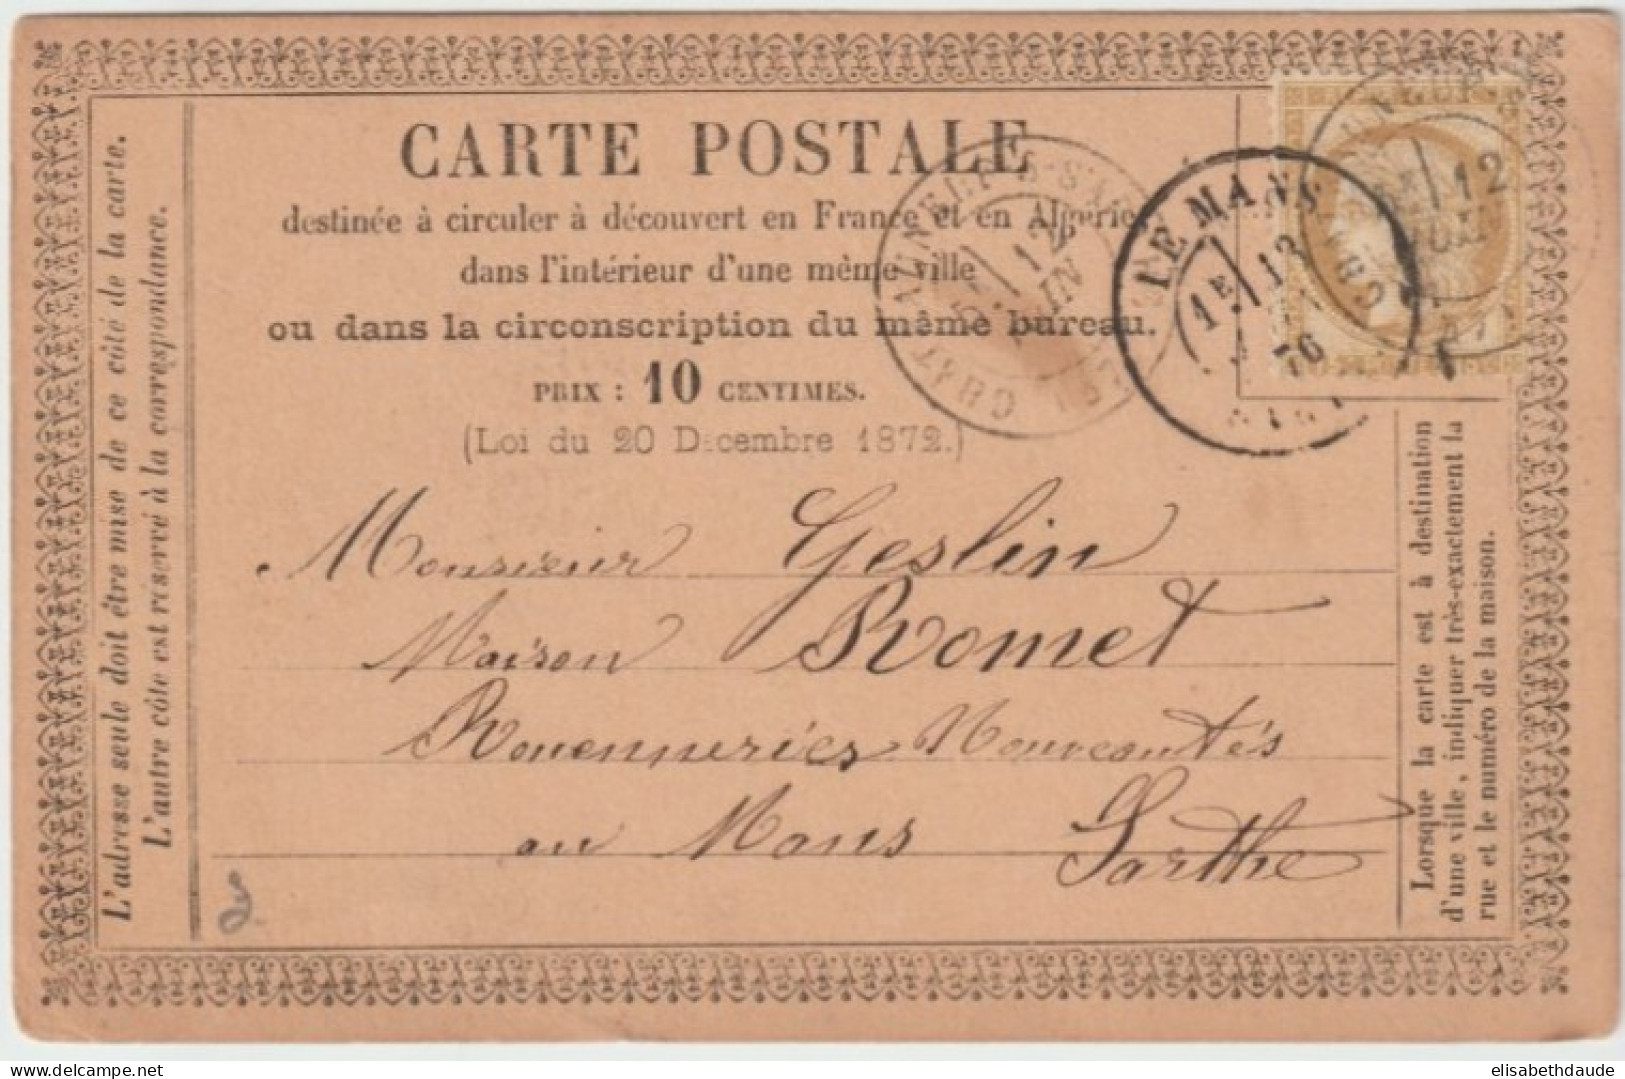 CARTE POSTALE
destinée à circuler à découvert en France et en Algérie
dans l'intérieur d'une même ville
ou dans la circonscription du même bureau.
PRIX : 10 CENTIMES.
(Loi du 20 Décembre 1872.)
LE MANS
1E 13
76
12
JUIN
12
Monsieur Geslin
Maison Romet
Rouenneries Nouveautés
au Mans Sarthe
L'adresse seule doit être mise de ce côté de la carte.
L'autre côté est réservé à la correspondance.
Lorsque la carte est à destination
d'une ville, indiquer très-exactement la
rue et le numéro de la maison.
elisabethdaude